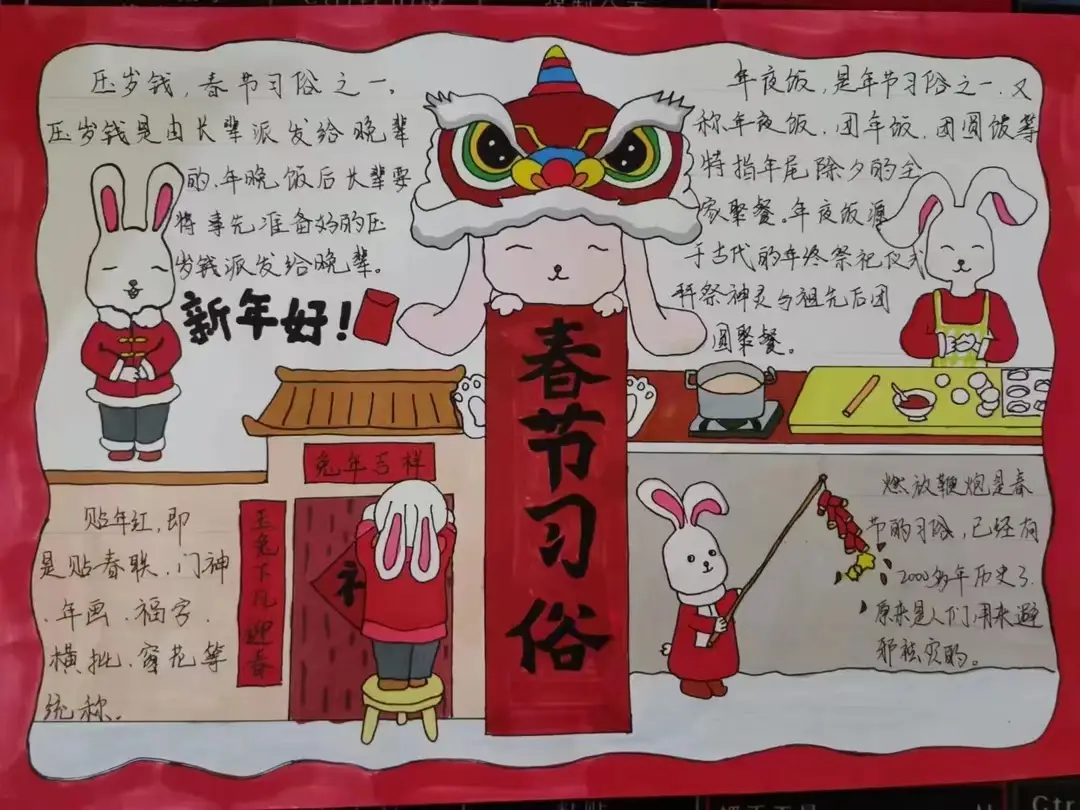 压岁钱，春节习俗之一。
压岁钱是由长辈派发给晚辈
的.年晚饭后长辈要
将事先准备好的压
岁钱派发给晚辈。
新年好！
年夜饭，是年节习俗之一.又
称年夜饭.团年饭.团圆饭等
特指年尾除夕的全
家聚餐。年夜饭源
于古代的年终祭祀仪式
拜祭神灵与祖先后团
圆聚餐。
春节习俗
兔年吉祥
玉兔下凡迎春
贴年红，即
是贴春联.门神
.年画.福字.
横批.窗花等
统称。
燃放鞭炮是春
节的习俗，已经有
2000多年历史了.
原来是人们用来避
邪祛灾的。